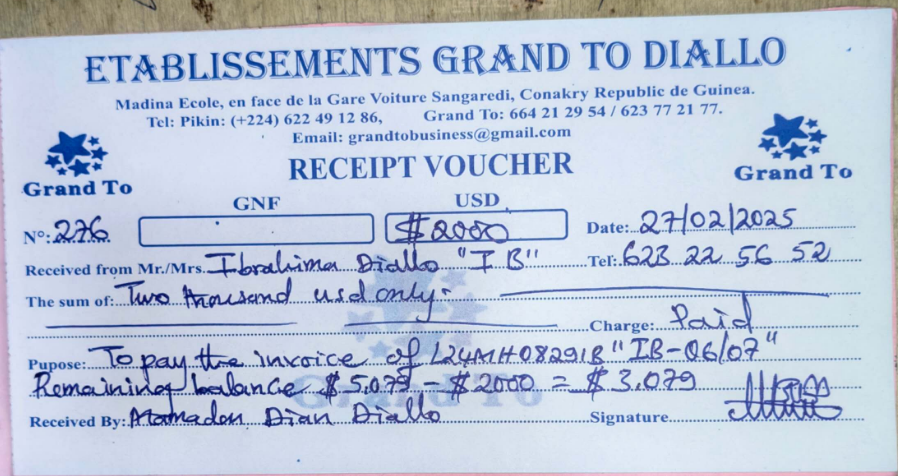 ETABLISSEMENTS GRAND TO DIALLO
Madina Ecole, en face de la Gare Voiture Sangaredi, Conakry Republic de Guinea.
Tel: Pikin: (+224) 622 49 12 86, Grand To: 664 21 29 54 / 623 77 21 77.
Email: grandtobusiness@gmail.com
RECEIPT VOUCHER
Grand To
Grand To
GNF USD
N°: 276 $2000 Date: 27/02/2025
Received from Mr./Mrs. Ibrahima Diallo "I B" Tel: 623 22 56 52
The sum of: Two thousand usd only -
Charge: Paid
Pupose: To pay the invoice of L24MH08291B "IB-06/07"
Remaining balance $5.079 - $2000 = $3.079
Received By: Mamadou Dian Diallo Signature